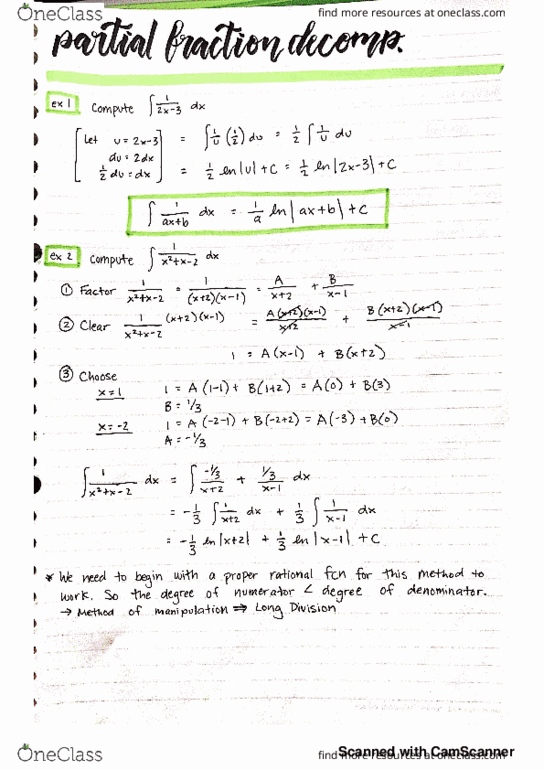 OneClass
find more resources at oneclass.com
partial fraction decomp.
ex 1 Compute ∫ 1/(2x-3) dx
[Let u = 2x-3 = ∫ 1/u (1/2) du = 1/2 ∫ 1/u du
du = 2dx
1/2 du = dx] = 1/2 ln|u| + C = 1/2 ln|2x-3| + C
∫ 1/(ax+b) dx = 1/a ln|ax+b| + C
ex 2 Compute ∫ 1/(x²+x-2) dx
① Factor 1/(x²+x-2) = 1/((x+2)(x-1)) = A/(x+2) + B/(x-1)
② Clear 1/(x²+x-2) (x+2)(x-1) = A(x+2)(x-1)/(x+2) + B(x+2)(x-1)/(x-1)
1 = A(x-1) + B(x+2)
③ Choose
x=1 1 = A(1-1) + B(1+2) = A(0) + B(3)
B = 1/3
x=-2 1 = A(-2-1) + B(-2+2) = A(-3) + B(0)
A = -1/3
∫ 1/(x²+x-2) dx = ∫ (-1/3)/(x+2) + (1/3)/(x-1) dx
= -1/3 ∫ 1/(x+2) dx + 1/3 ∫ 1/(x-1) dx
= -1/3 ln|x+2| + 1/3 ln|x-1| + C
* We need to begin with a proper rational fcn for this method to
work. So the degree of numerator < degree of denominator.
→ Method of manipulation ⇒ Long Division
OneClass
find more resources at oneclass.com
Scanned with CamScanner